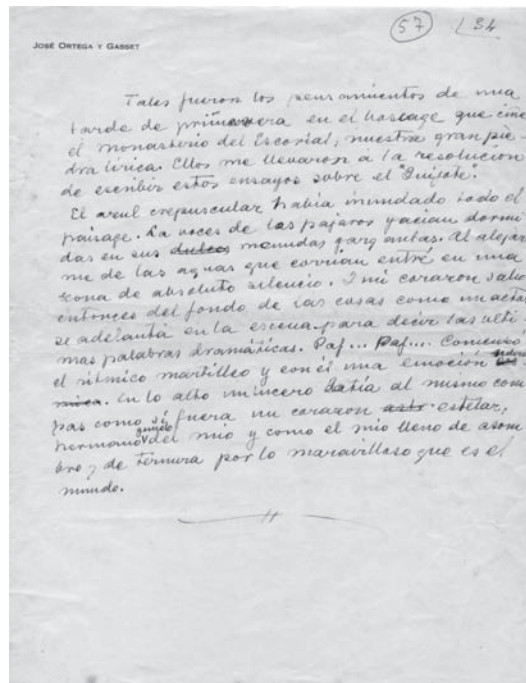 57 34
JOSÉ ORTEGA Y GASSET
Tales fueron los pensamientos de una
tarde de primavera en el boscage que ciñe
el monasterio del Escorial, nuestra gran pie-
dra lírica. Ellos me llevaron a la resolución
de escribir estos ensayos sobre el "Quijote".
El azul crepuscular había inundado todo el
paisage. La voces de los pájaros yacian dormi
das en sus dulces menudas gargantas. Al alejar
me de las aguas que corrían entré en una
zona de absoluto silencio. Y mi corazon salio
entonces del fondo de las cosas como un actor
se adelanta en la escena para decir las ulti-
mas palabras dramáticas. Paf... Paf... Comenzo
el rítmico martilleo y con él una emoción
En lo alto un lucero latía al mismo com
pas como si fuera un corazon estelar,
hermano gemelo del mio y como el mio lleno de asom
bro y de ternura por lo maravilloso que es el
mundo.